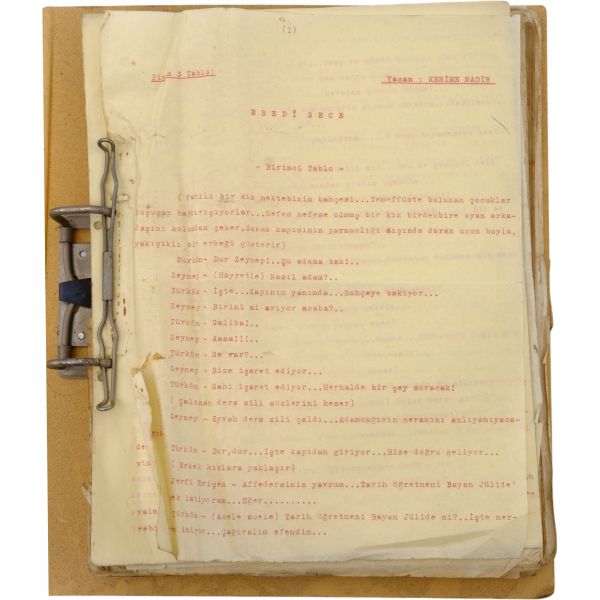 (1)
Piyes 3 Tablo:
Yazan : KERİME NADİR
EBEDÎ GECE
- Birinci Tablo -
( Yatılı bir kız mektebinin bahçesi...Teneffüste bulunan çocuklar
koşuşup haykırışıyorlar...Nefes nefese olmuş bir kız birdenbire oyun arka-
daşını kolundan çeker.Sokak kapısının parmaklığı dışında duran uzun boylu,
yakışıklı bir erkeği gösterir)
Türkân- Dur Zeynep!..Şu adama bak!..
Zeynep- (Hayretle) Nasıl adam?..
Türkân - İşte...Kapının yanında...Bahçeye bakıyor...
Zeynep - Birini mi arıyor acaba?..
Türkân - Galiba!..
Zeynep - Aaaa!!!..
Türkân - Ne var?...
Zeynep - Bize işaret ediyor...
Türkân - Sahi işaret ediyor...Herhalde bir şey soracak!
( Çalınan ders zili sözlerini keser)
Zeynep - Eyvah ders zili çaldı...Adamcağızın meramını anlıyamıyaca-
Türkân - Dur,dur...İşte kapıdan giriyor...Bize doğru geliyor...
( Erkek kızlara yaklaşır)
Jerfi Erişen - Affedersiniz yavrum...Tarih öğretmeni Bayan Jülide'
istiyorum...Eğer..........
Türkân - (Acele acele) Tarih öğretmeni Bayan Jülide mi?..İşte mer-
iniyor...Çağıralım efendim...